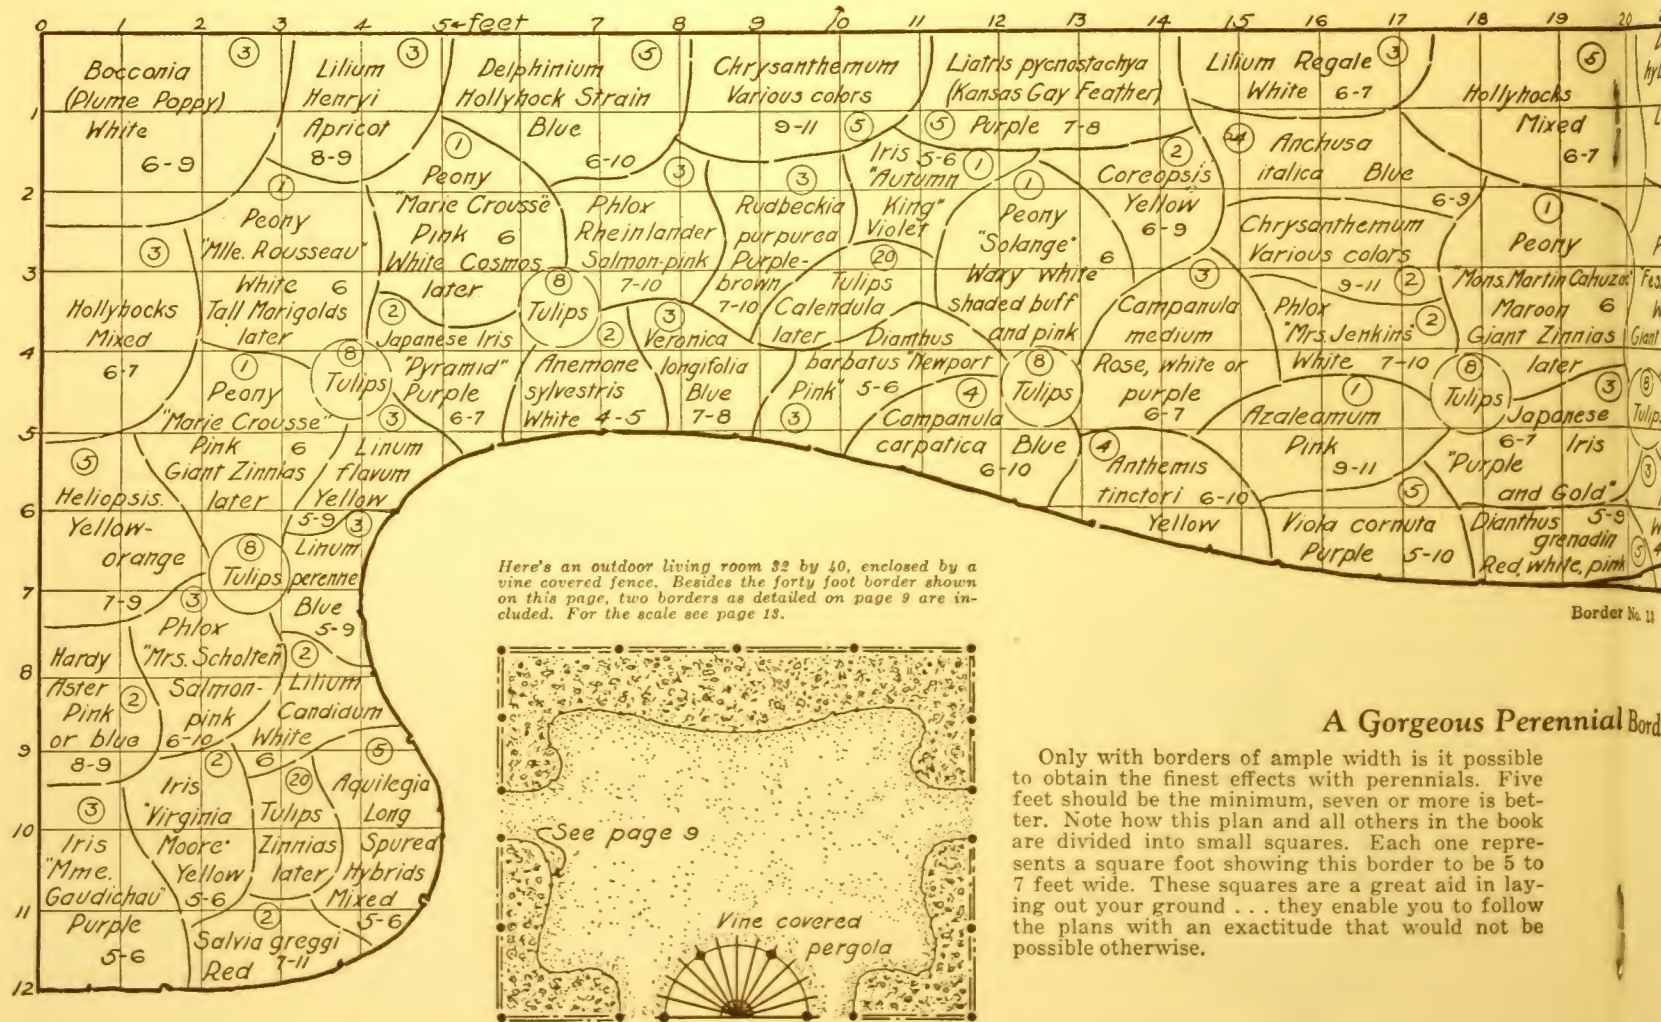 0 1 2 3 5 ← feet 7 8 9 10 11 12 13 14 15 16 17 18 19 20
1
2
3
4
5
6
7
8
9
10
11
12
3
Bocconia
(Plume Poppy)
White
6-9
3
Lilium
Henryi
Apricot
8-9
5
Delphinium
Hollyhock Strain
Blue
6-10
Chrysanthemum
Various colors
9-11 5
Liatris pycnostachya
(Kansas Gay Feather)
5 Purple 7-8
3
Lilium Regale
White 6-7
5
Hollyhocks
Mixed
6-7
1
Peony
"Mlle. Rousseau"
White 6
Tall Marigolds
later
1
Peony
"Marie Crousse"
Pink 6
White Cosmos
later
3
Phlox
Rheinlander
Salmon-pink
7-10
3
Rudbeckia
purpurea
Purple-
brown
7-10
Iris 5-6 1
"Autumn
King"
Violet
1
Peony
"Solange"
Waxy white 6
shaded buff
and pink
2
Coreopsis
Yellow
6-9
Anchusa
italica Blue
6-9
Chrysanthemum
Various colors
9-11 2
1
Peony
"Mons. Martin Cahuzac"
Maroon 6
Giant Zinnias
later
3
Hollyhocks
Mixed
6-7
8
Tulips
2
Japanese Iris
"Pyramid"
Purple
6-7
8
Tulips
2
Anemone
sylvestris
White 4-5
3
Veronica
longifolia
Blue
7-8
20
Tulips
Calendula
later
Dianthus
barbatus "Newport
Pink" 5-6
3
4
Campanula
carpatica Blue
6-10
8
Tulips
3
Campanula
medium
Rose, white or
purple
6-7
Phlox
"Mrs. Jenkins" 2
White 7-10
1
Azaleamum
Pink
9-11
8
Tulips
3
Japanese
6-7 Iris
"Purple
and Gold"
4
Anthemis
tinctori 6-10
Yellow
5
Viola cornuta
Purple 5-10
Dianthus 5-9
grenadin
Red, white, pink
5
1
Peony
"Marie Crousse"
Pink 6
Giant Zinnias
later
3
Linum
flavum
Yellow
5-9
5
Heliopsis
Yellow-
orange
7-9
8
Tulips
3
Linum
perenne
Blue
5-9
3
Phlox
"Mrs. Scholten"
Salmon-
pink
6-10
2
Lilium
Candidum
White
6
Hardy
Aster 2
Pink
or blue
8-9
3
Iris
"Mme.
Gaudichau"
Purple
5-6
2
Iris
"Virginia
Moore"
Yellow
5-6
20
Tulips
Zinnias
later
5
Aquilegia
Long
Spured
Hybrids
Mixed
5-6
2
Salvia greggi
Red 7-11
8
Tulips
3
Giant
Here's an outdoor living room 32 by 40, enclosed by a
vine covered fence. Besides the forty foot border shown
on this page, two borders as detailed on page 9 are in-
cluded. For the scale see page 13.
See page 9
Vine covered
pergola
Border No. 13
A Gorgeous Perennial Bord
Only with borders of ample width is it possible
to obtain the finest effects with perennials. Five
feet should be the minimum, seven or more is bet-
ter. Note how this plan and all others in the book
are divided into small squares. Each one repre-
sents a square foot showing this border to be 5 to
7 feet wide. These squares are a great aid in lay-
ing out your ground . . . they enable you to follow
the plans with an exactitude that would not be
possible otherwise.